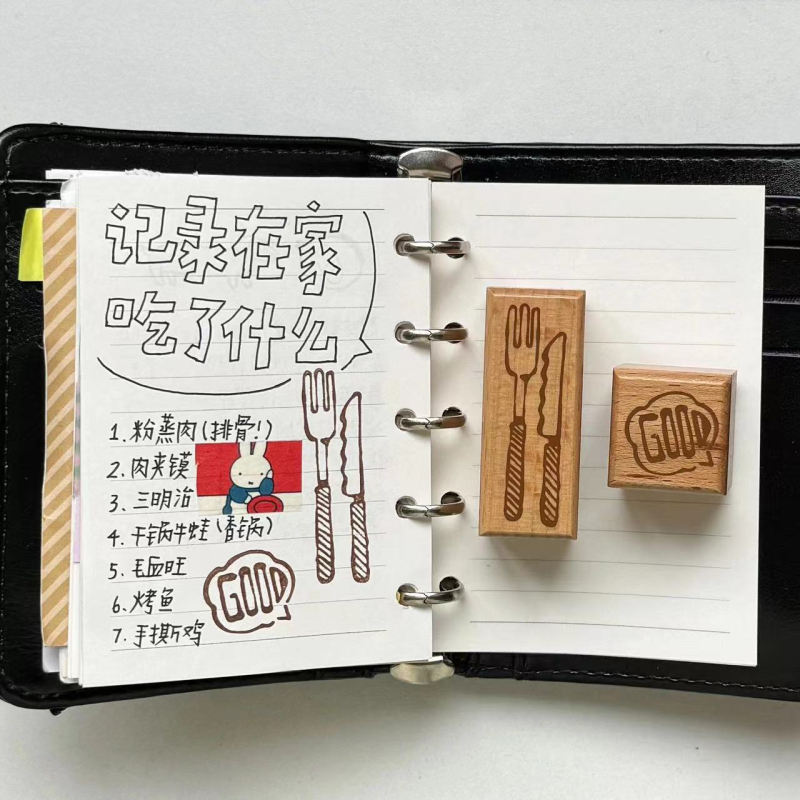 记录在家
吃了什么
1.粉蒸肉(排骨!)
2.肉夹馍
3.三明治
4.干锅牛蛙(香锅)
5.毛血旺
6.烤鱼
7.手撕鸡
GOOD
GOOD